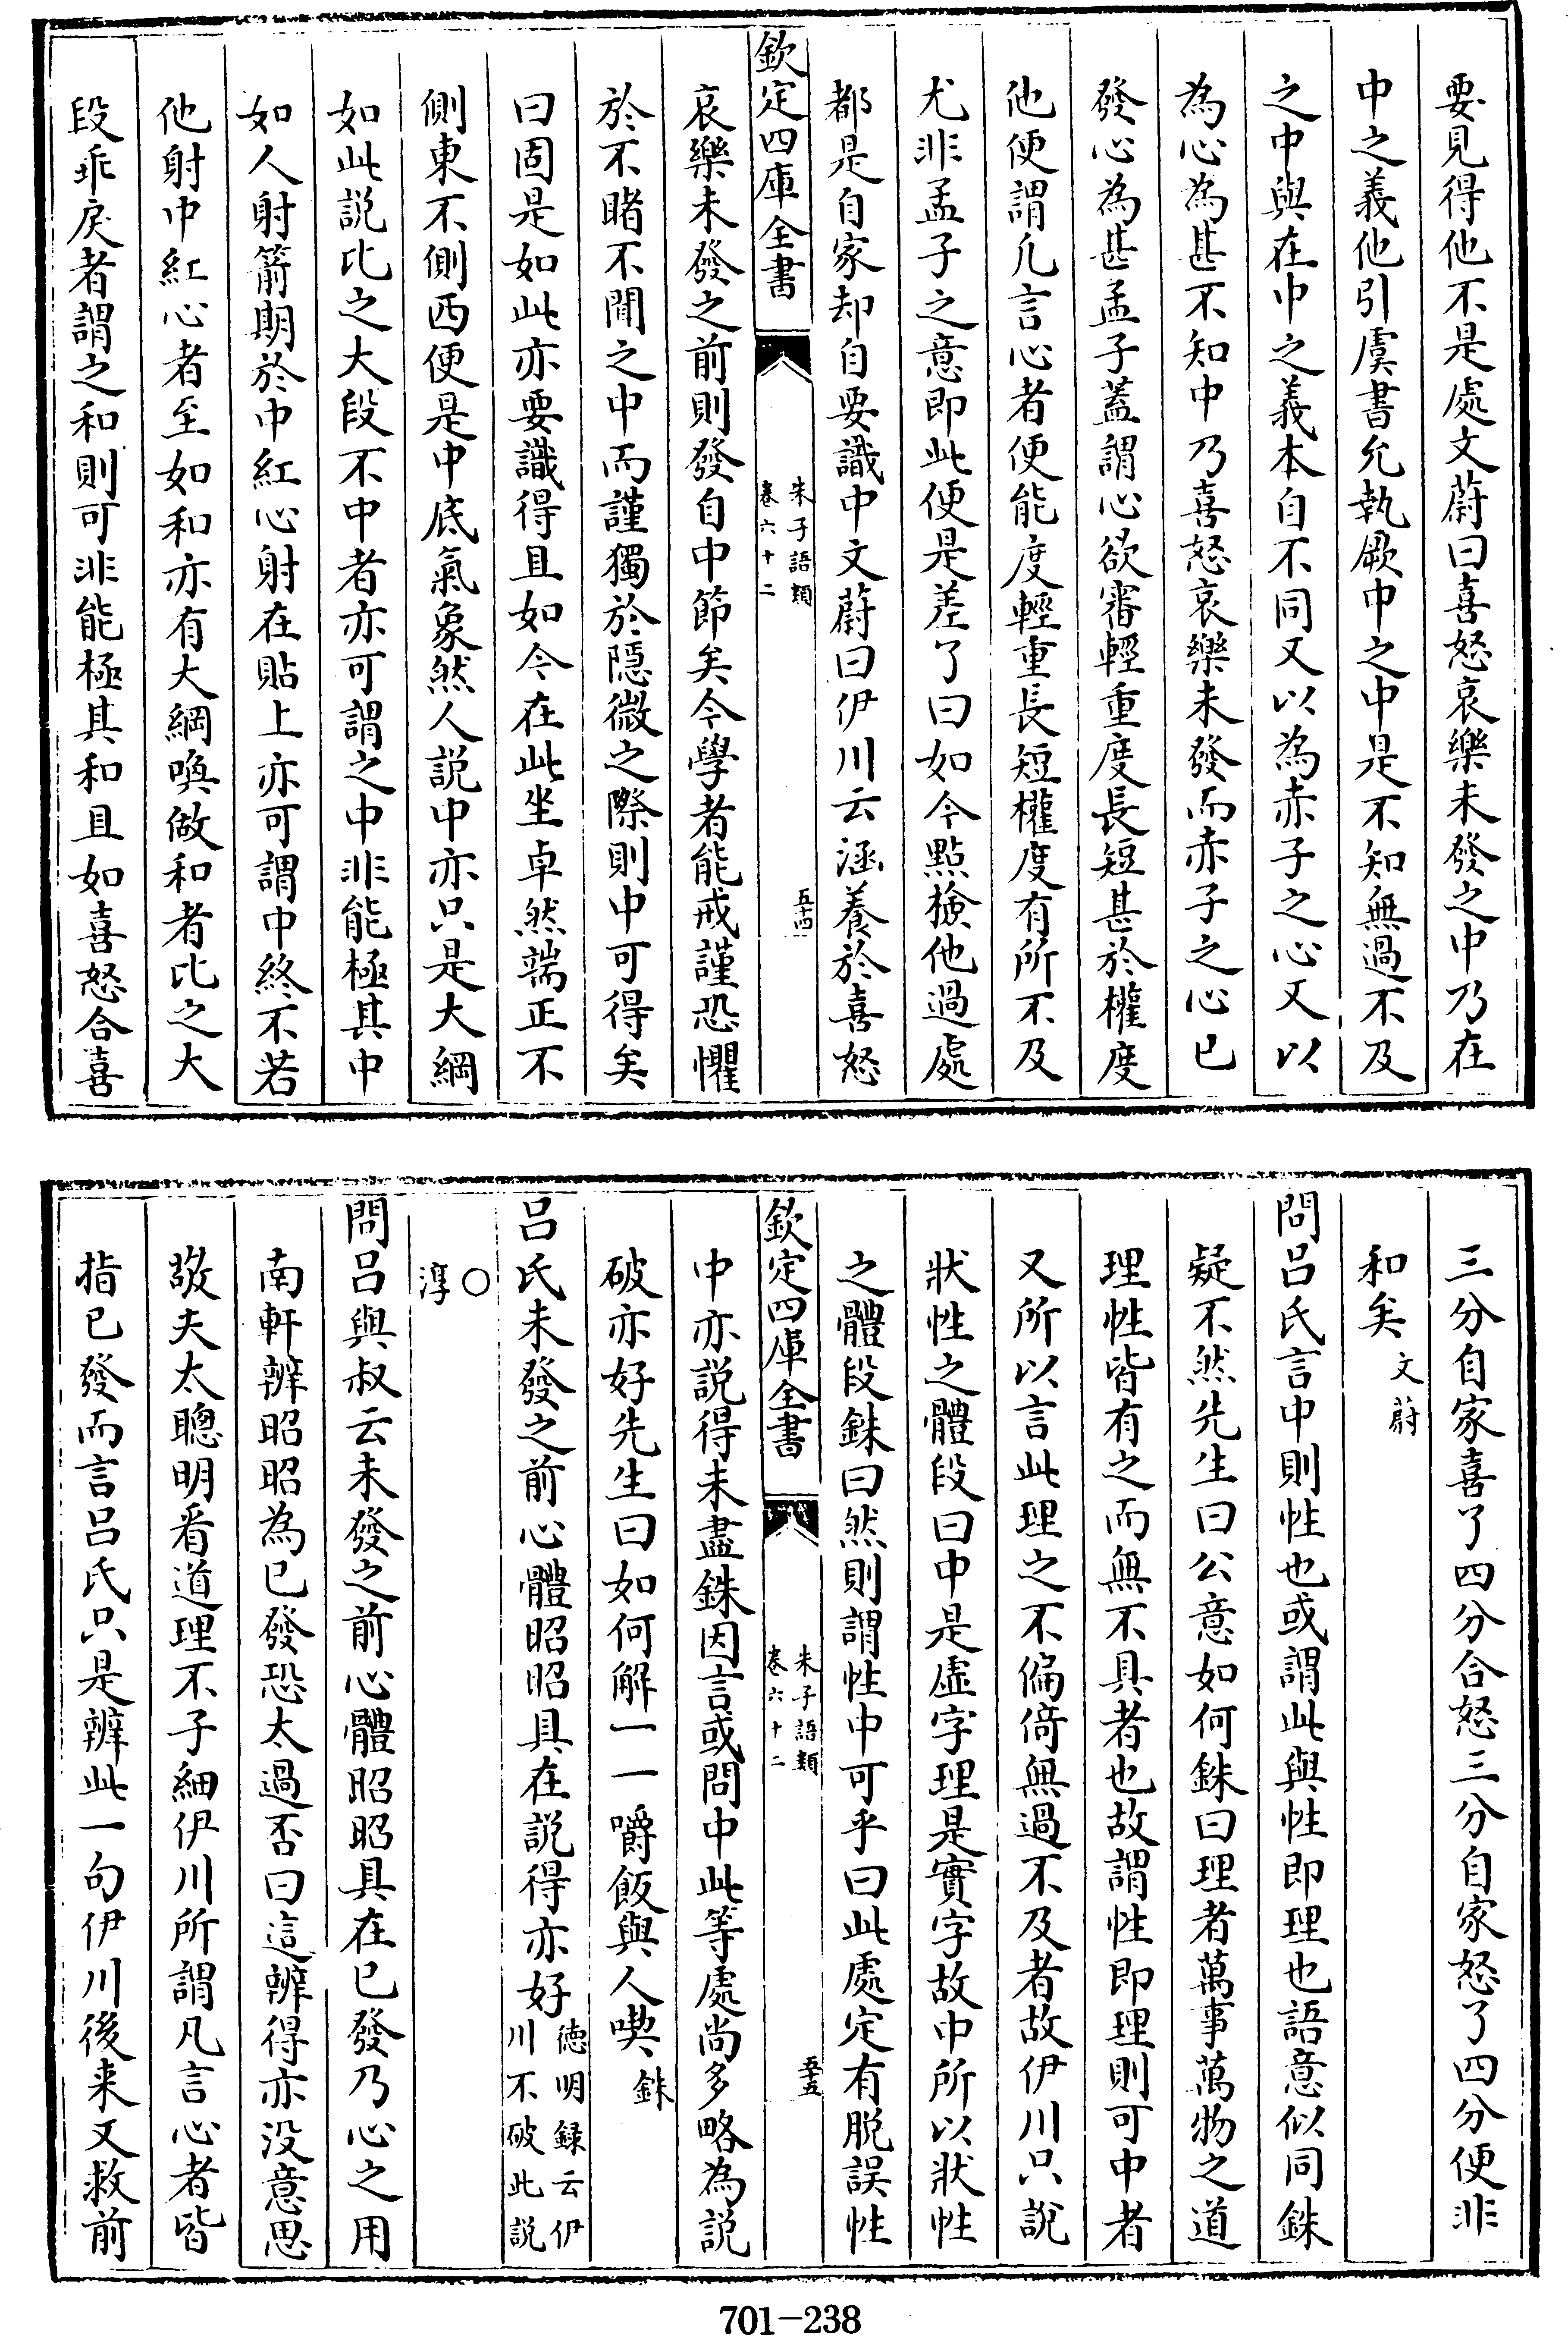 要見得他不是處文蔚曰喜怒哀樂未發之中乃在
中之義他引虞書允執厥中之中是不知無過不及
之中與在中之義本自不同又以為赤子之心又以
為心為甚不知中乃喜怒哀樂未發而赤子之心已
發心為甚孟子蓋謂心欲審輕重度長短甚於權度
他便謂凡言心者便能度輕重長短權度有所不及
尤非孟子之意即此便是差了曰如今點檢他過處
都是自家却自要識中文蔚曰伊川云涵養於喜怒
欽定四庫全書
朱子語類
卷六十二
五十四
哀樂未發之前則發自中節矣今學者能戒謹恐懼
於不睹不聞之中而謹獨於隱微之際則中可得矣
曰固是如此亦要識得且如今在此坐卓然端正不
側東不側西便是中底氣象然人説中亦只是大綱
如此説比之大段不中者亦可謂之中非能極其中
如人射箭期於中紅心射在貼上亦可謂中終不若
他射中紅心者至如和亦有大綱喚做和者比之大
段乖戾者謂之和則可非能極其和且如喜怒合喜
三分自家喜了四分合怒三分自家怒了四分便非
和矣文蔚
問吕氏言中則性也或謂此與性即理也語意似同銖
疑不然先生曰公意如何銖曰理者萬事萬物之道
理性皆有之而無不具者也故謂性即理則可中者
又所以言此理之不偏倚無過不及者故伊川只說
狀性之體段曰中是虛字理是實字故中所以狀性
之體段銖曰然則謂性中可乎曰此處定有脱誤性
欽定四庫全書
朱子語類
卷六十二
五十五
中亦説得未盡銖因言或問中此等處尚多略為説
破亦好先生曰如何解一一嚼飯與人喫銖
吕氏未發之前心體昭昭具在説得亦好德明録云伊
川不破此説
○
淳
問吕與叔云未發之前心體昭昭具在已發乃心之用
南軒辨昭昭為已發恐太過否曰這辨得亦没意思
敬夫太聰明看道理不子細伊川所謂凡言心者皆
指已發而言吕氏只是辨此一句伊川後来又救前
701-238